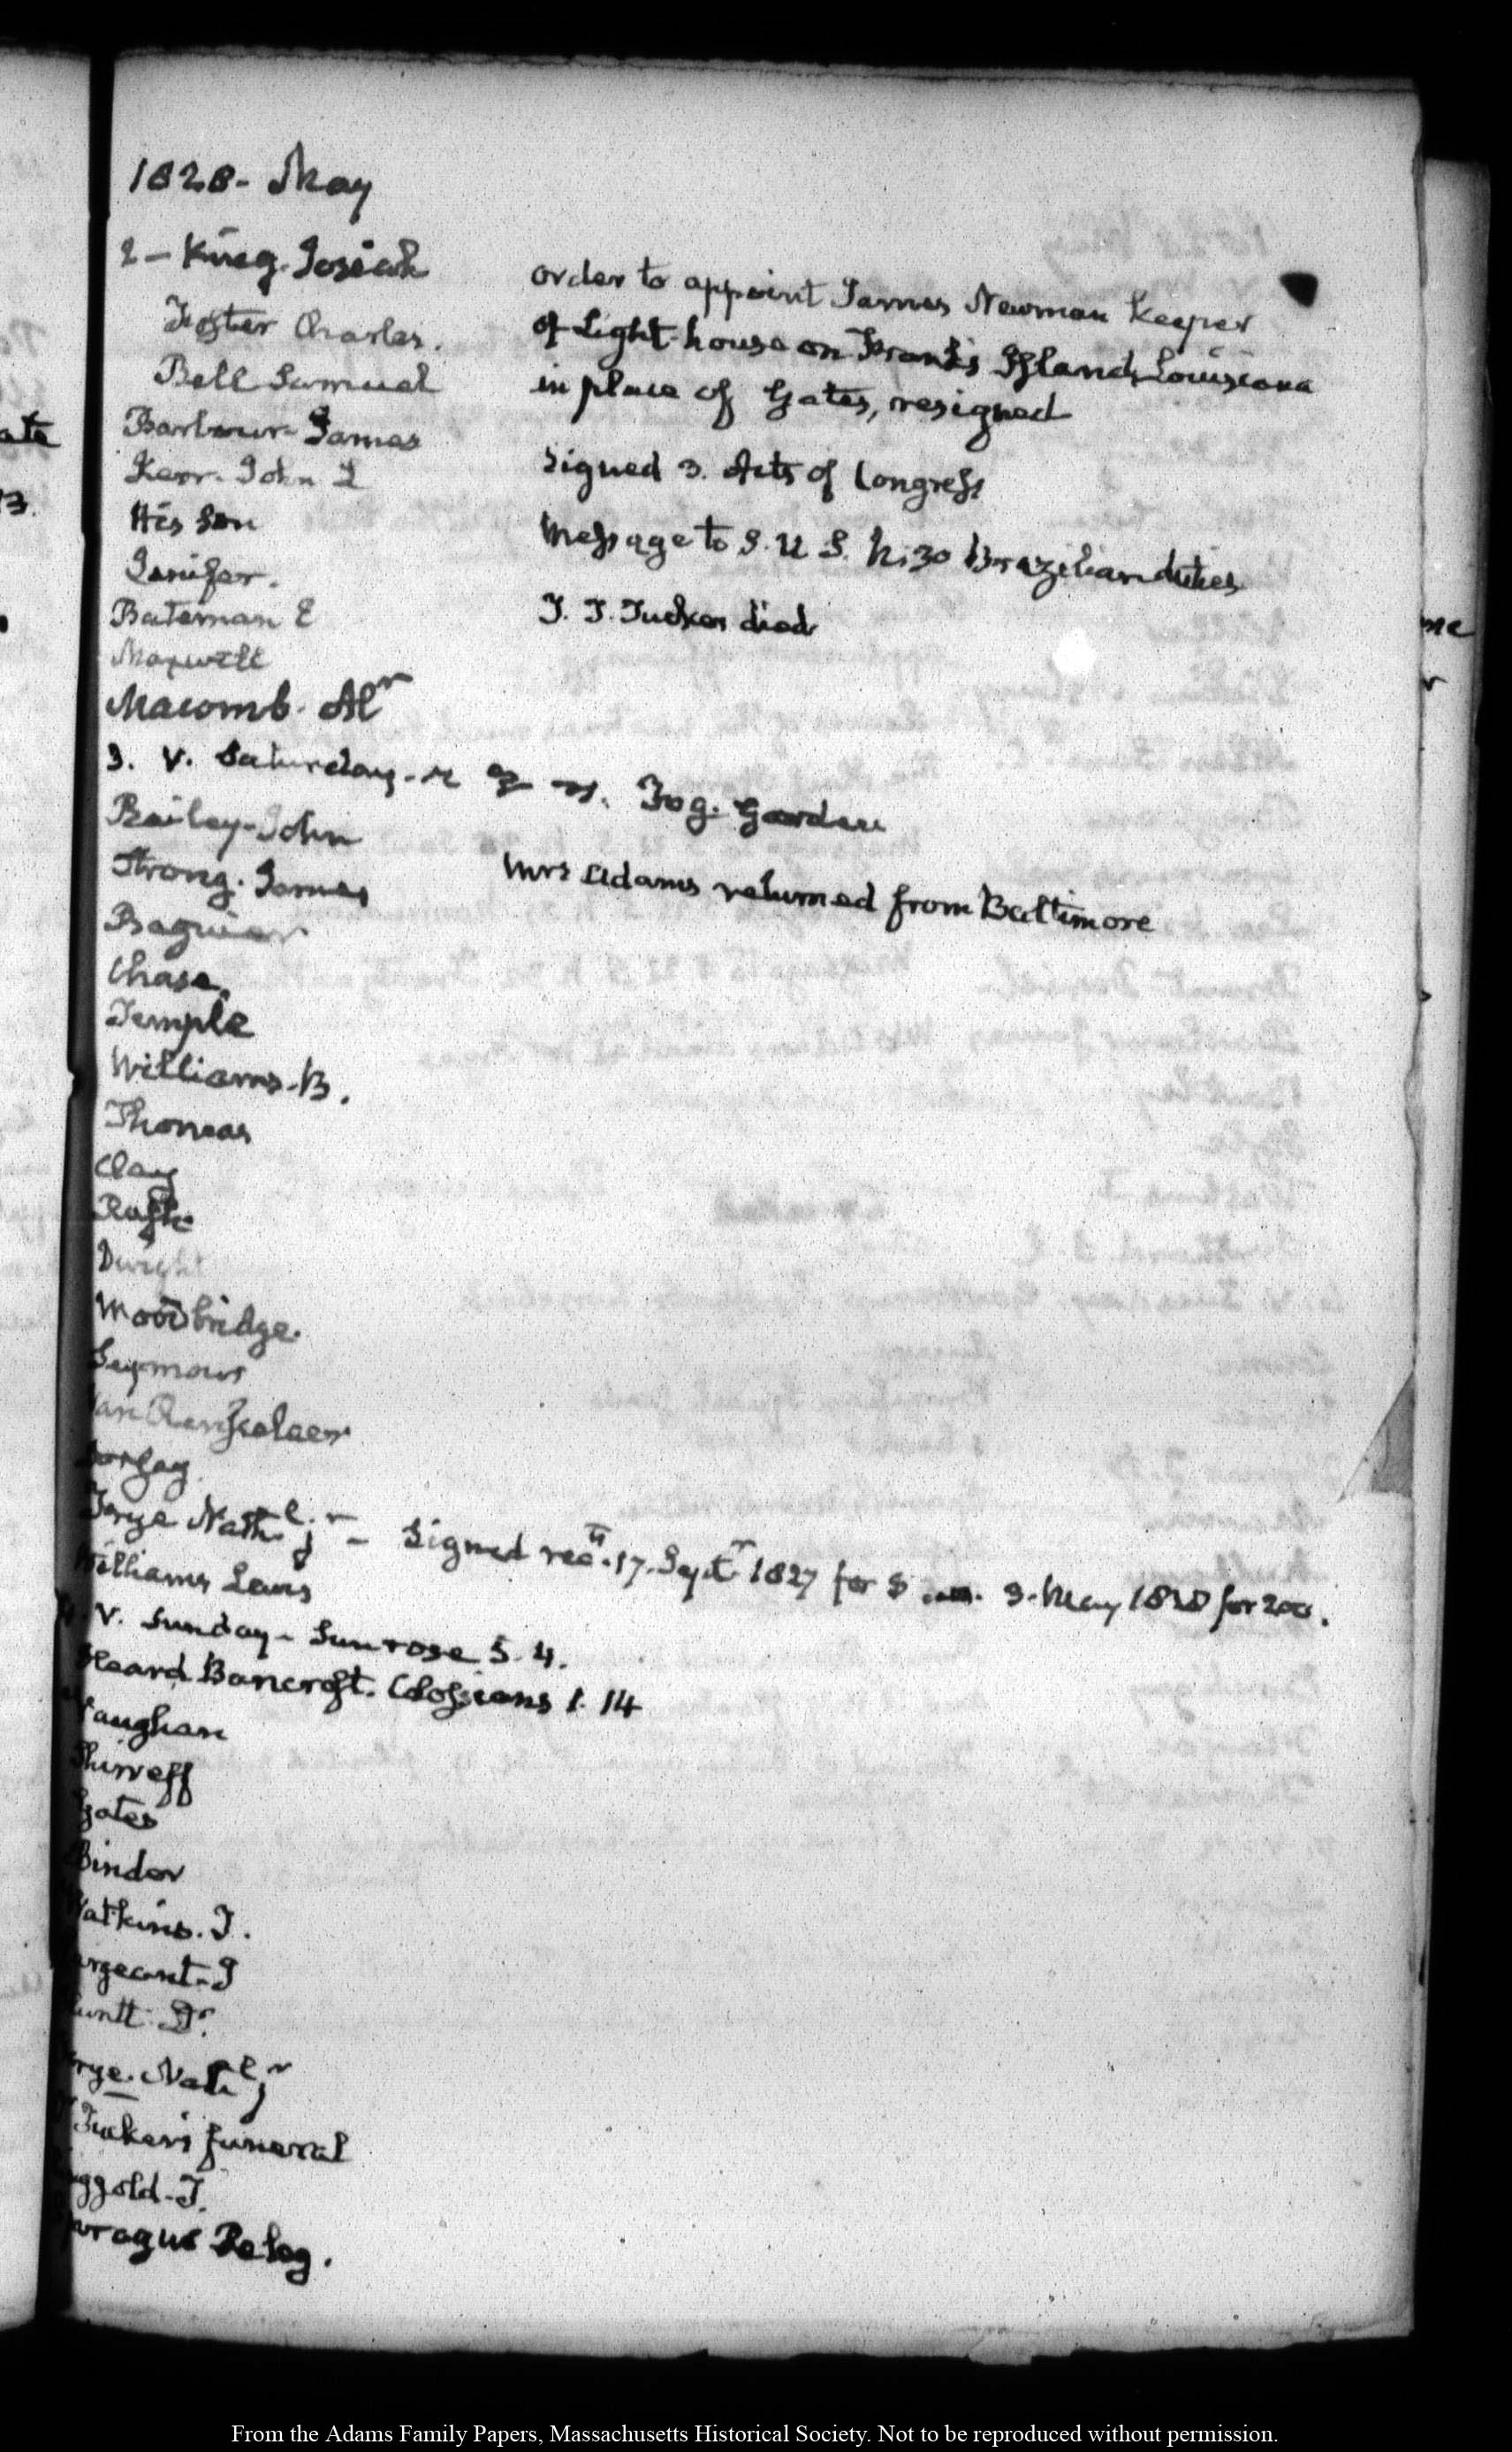 1828- May
2 - King. Josiah
Foster Charles.
Bell Samuel
Barbour James
Kerr. John L
His Son
Jenifer.
Bateman E
Maxwell
Macomb. Alr
order to appoint James Newman Keeper
of Light-house on Frank's Island, Louisiana
in place of Gates, resigned
Signed 3. Acts of Congress
Message to S. U. S. N. 30 Brazilian duties
T. T. Tucker died
3. V. Saturday.
Fog. Garden
Bailey. John
Strong. James
Mrs Adams returned from Baltimore
Chase.
Temple
Williams. B.
Thomas
Clay
Rush
Dwight
Woodbridge.
Seymour
Van Rensselaer
Dorsey
Frye Nathl. jr - Signed rect. 17. Septr 1827 for $ 3. May 1828 for 200.
Williams Lewis
4. V. Sunday - Sun rose 5. 4.
Heard Bancroft. Colossians 1. 14
Vaughan
Shirreff
Gates
Binder
Watkins. T.
Sergeant. J
Huntt. Dr.
Frye. Nathl jr
Tucker's funeral
Ringgold. T.
Sprague Peleg.
ate
13.
me
From the Adams Family Papers, Massachusetts Historical Society. Not to be reproduced without permission.